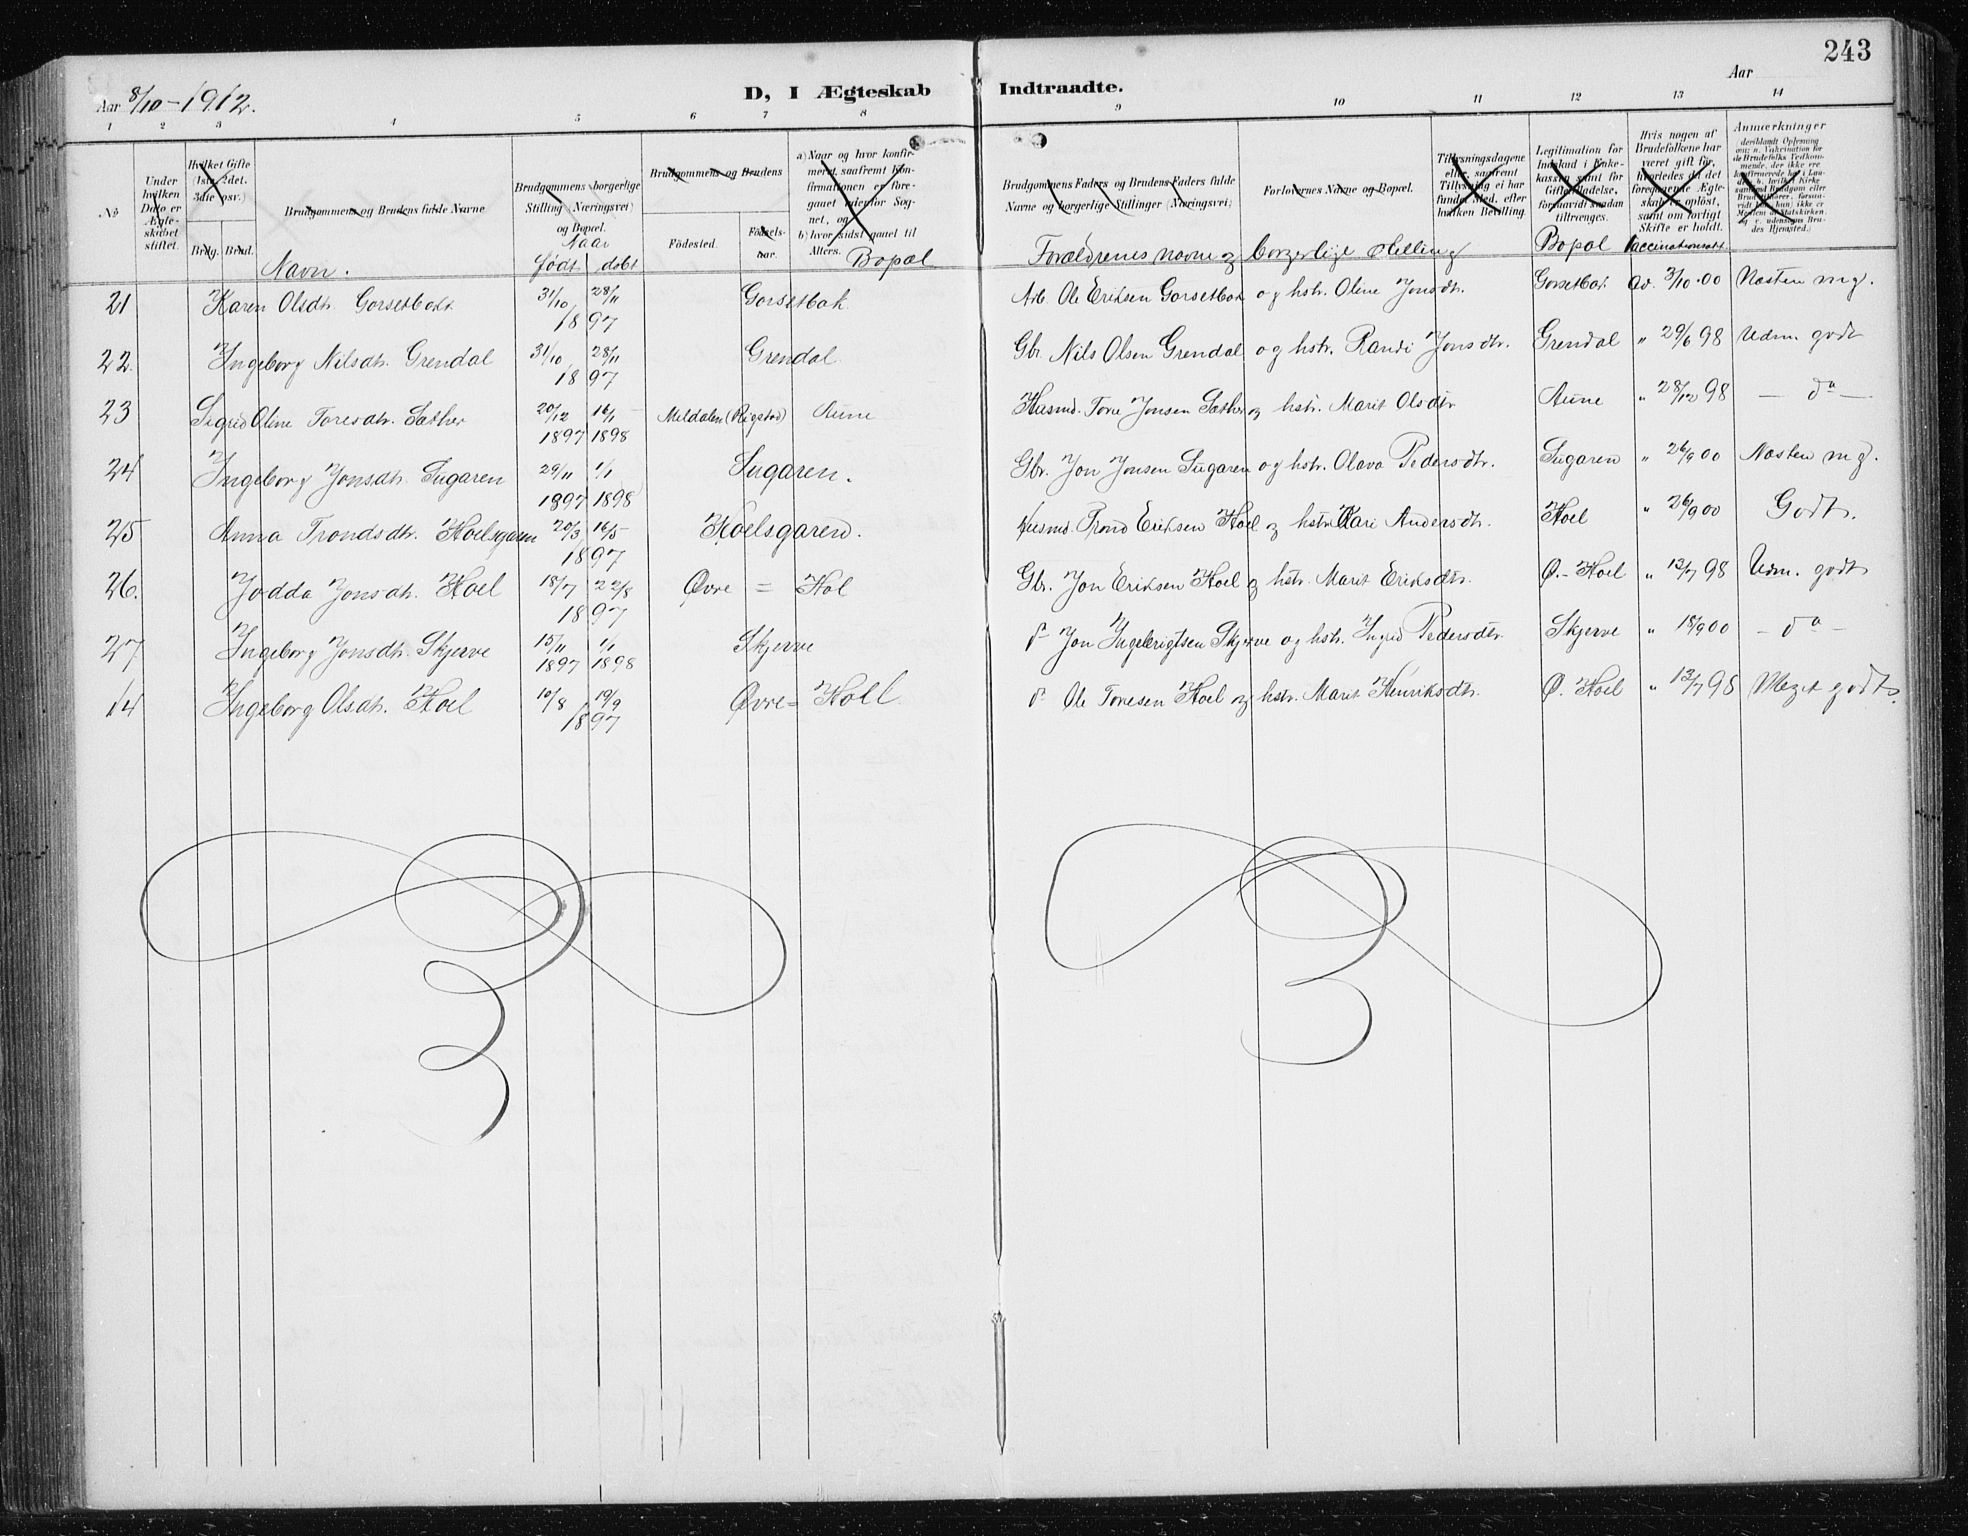 243
Aar 8/10 - 1912.
D, I Ægteskab Indtraadte.
Aar
1 2 3 4 5 6 7 8 9 10 11 12 13 14
No
Under hvilken Dato er Ægteskabet stiftet.
Hvilket Gifte (1ste, 2det. 3die osv.)
Brdg. Brud.
Brudgommens og Brudens fulde Navne
Navn.
Brudgommens borgerlige Stilling (Næringsvei) og Bopæl.
Naar
født døbt
Brudgommens og Brudens
Födested. Födselsaar.
a) Naar og hvor konfirmeret, saafremt Konfirmationen er foregaaet udenfor Sognet, og
b) hvor sidst gaaet til Alters.
Bopæl
Brudgommens Faders og Brudens Faders fulde Navne og borgerlige Stillinger (Næringsvei)
Forlovernes Navne og Bopæl.
Forældrenes navne og borgerlige stilling
Tillysningsdagene eller, saafremt Tillysning ei har fundet Sted, efter hvilken Bevilling.
Legitimation for Indskud i Enkekassen samt for Giftetilladelse, forsaavidt saadan tiltrenges.
Bopæl
Hvis nogen af Brudefolkene har været gift før, hvorledes da det foregaaende Ægteskab er opløst, samt om lovligt Skifte er holdt.
Vaccinationsatt.
Anmærkninger
21 Karen Olsdt. Gorsetbakk 31/10 28/11 1897 Gorsetbak Arb. Ole Eriksen Gorsetbak og hstr. Oline Jonsdtr. Gorsetbak Av. 3/10.00 Næsten mg.
22. Ingeborg Nilsdtr. Grendal 31/10 28/11 1897 Grendal Gbr. Nils Olsen Grendal og hstr. Randi Jonsdtr. Grendal " 29/6 98 Udm. godt
23 Sigrid Oline Toresdtr. Sæther 20/12 1897 16/1 1898 Meldalen (Rigstad) Aune Husmd. Tore Jonsen Sæther og hstr. Marit Olsdtr Aune " 28/12 98 — do —
24 Ingeborg Jonsdtr. Sugaren 29/11 1897 1/1 1898 Sugaren. Gbr. Jon Jonsen Sugaren og hstr. Olava Pedersdtr. Sugaren " 26/9 00 Næsten mg.
25 Anna Trondsdtr. Hoelsgaren 20/3 16/5 1897 Hoelsgaren. Husmd. Trond Eriksen Hoel og hstr. Kari Andersdtr. Hoel " 26/9 00 Godt.
26. Jødda Jonsdtr. Hoel 18/7 22/8 1897 Øvre = Hol Gbr. Jon Eriksen Hoel og hstr. Marit Eriksdtr. Ø.- Hoel " 13/7 98 Udm. godt
27 Ingeborg Jonsdtr. Skjerve 15/11 1897 1/1 1898 Skjerve do Jon Ingebrigtsen Skjerve og hstr. Ingrid Pedersdtr. Skjerve " 18/9 00 — do —
14 Ingeborg Olsdtr. Hoel 10/8 19/9 1897 Øvre = Holl do Ole Toresen Hoel og hstr. Marit Henriksdtr. Ø. Hoel " 13/7 98 Meget godt.